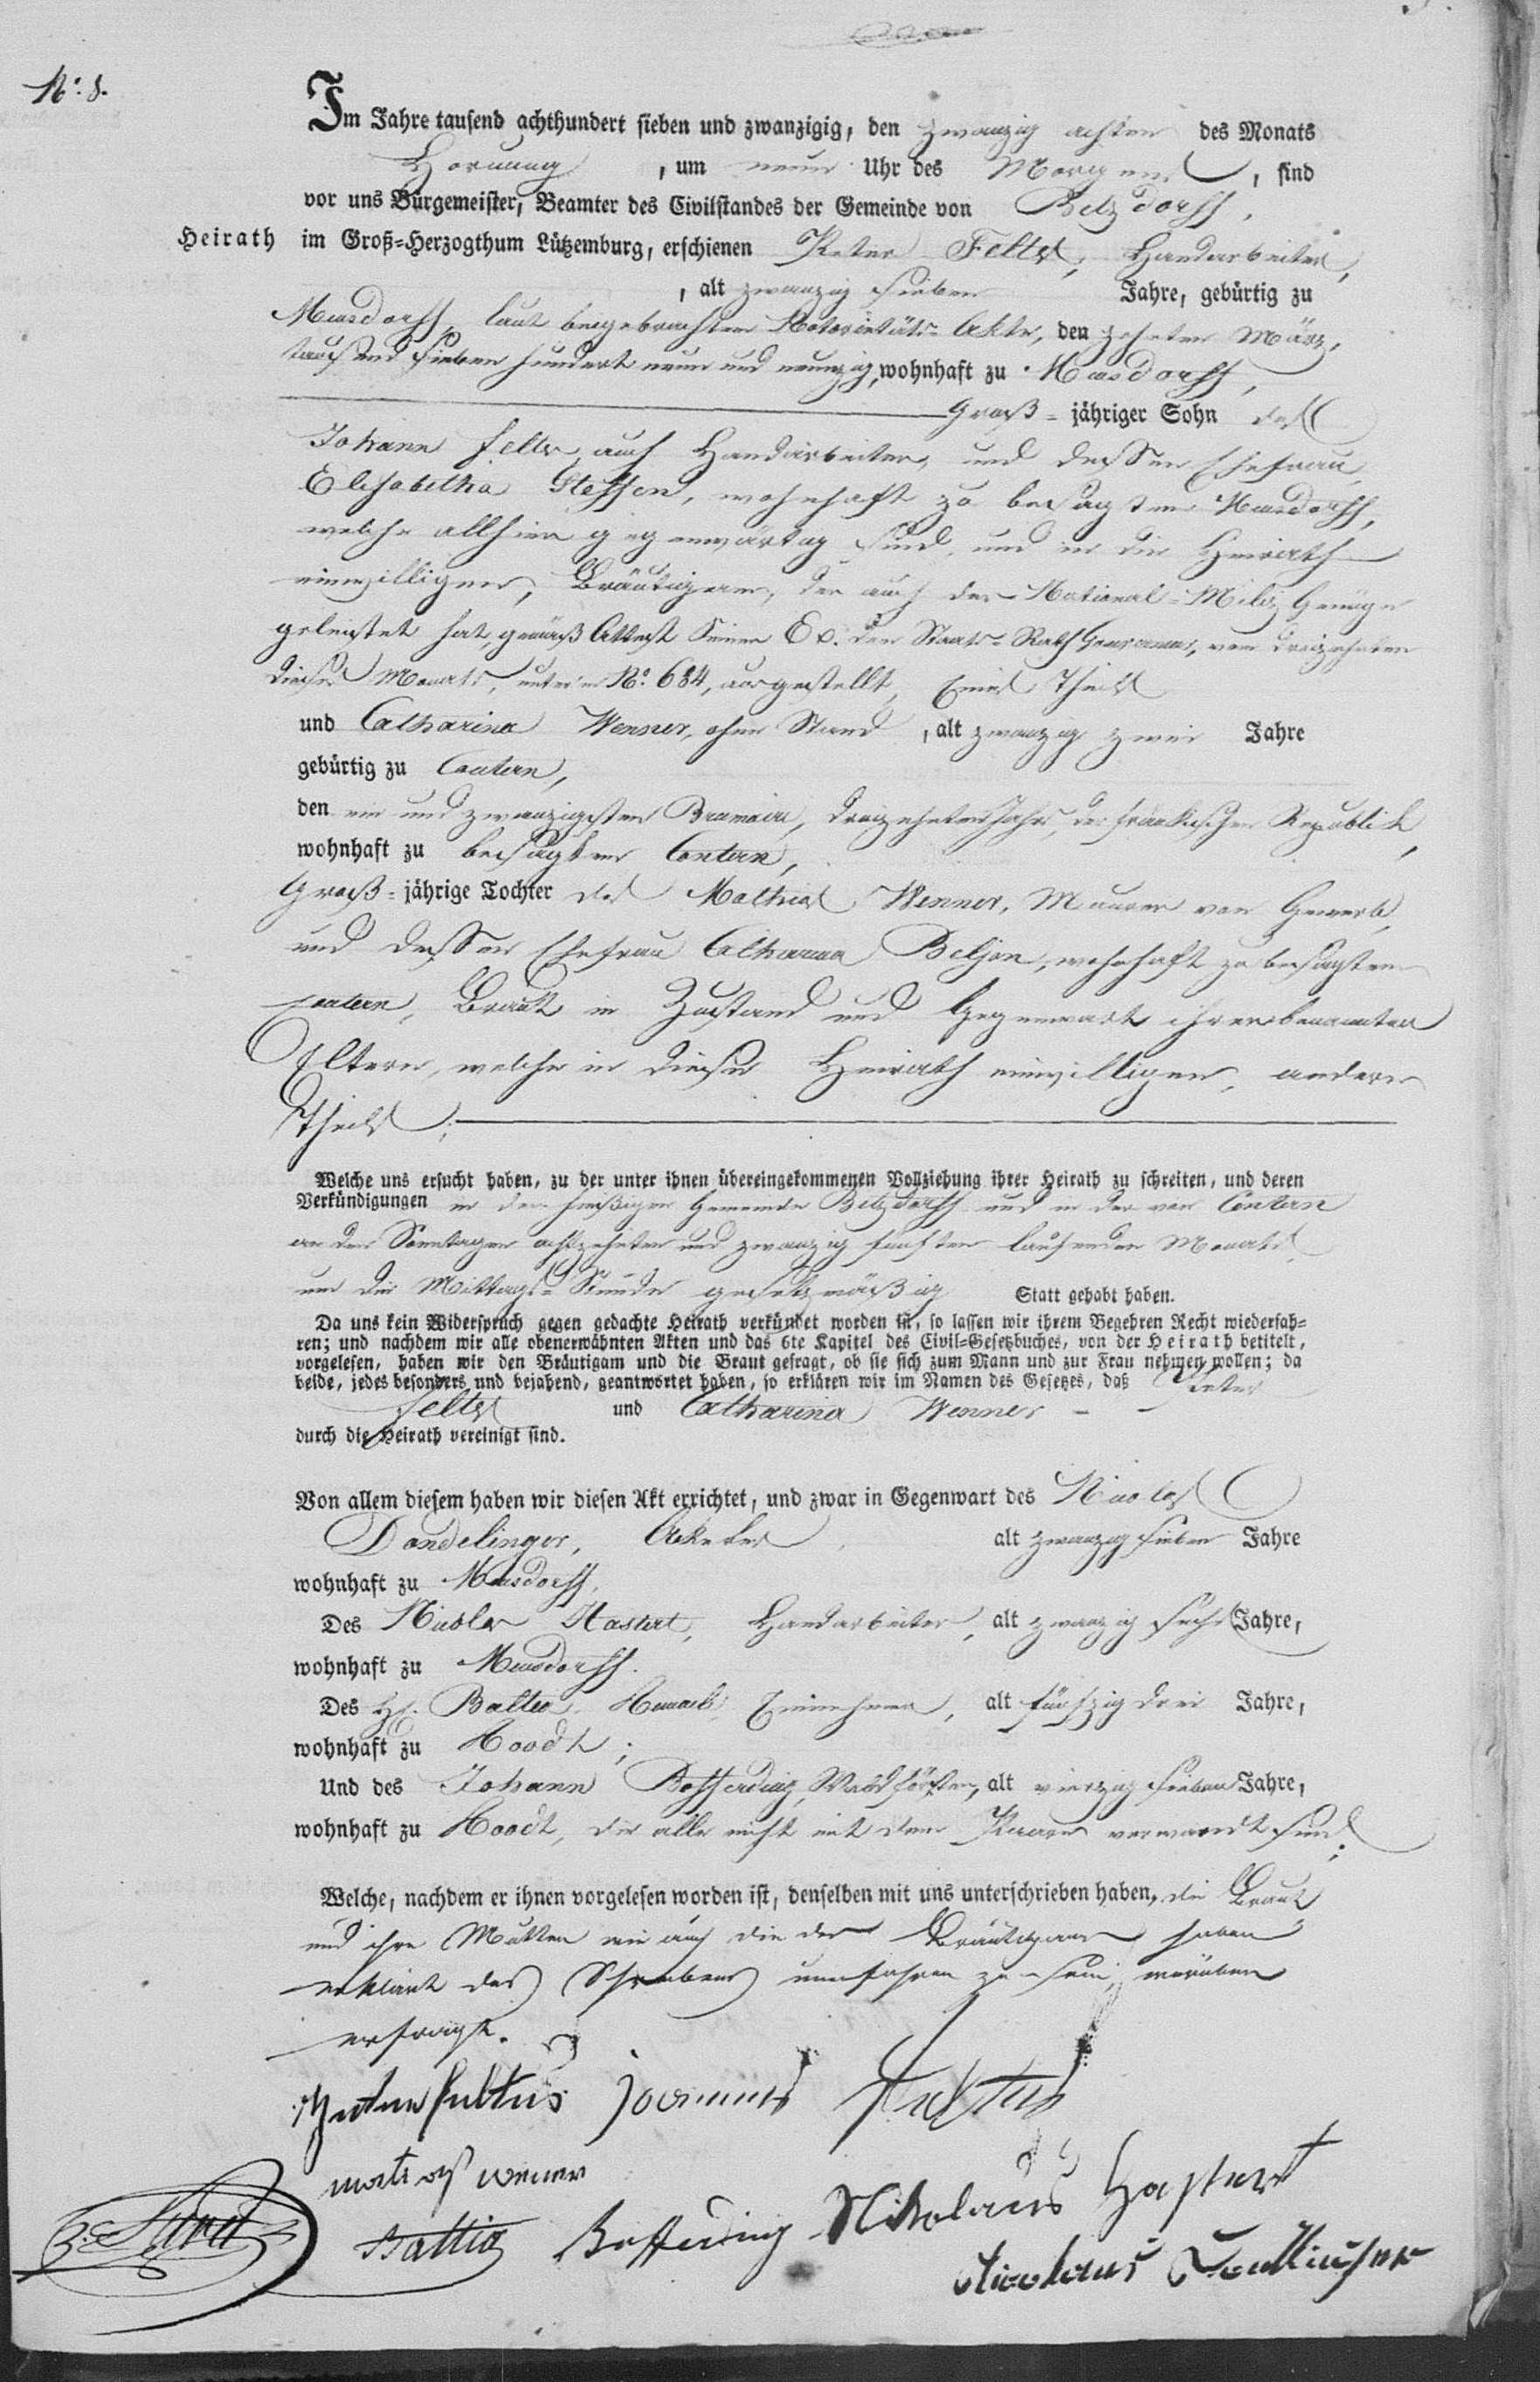 No: 8.
Im Jahre tausend achthundert sieben und zwanzigig, den zwanzig achten des Monats
Hornung, um neun Uhr des Morgens, sind
vor uns Bürgemeister, Beamter des Civilstandes der Gemeinde von Betzdorff,
Heirath im Groß=Herzogthum Lützemburg, erschienen Peter Feltes, Handarbeiter,
, alt zwanzig sieben Jahre, gebürtig zu
Mensdorff, laut beygebrachten Notorietäts=Akte, den zehnten März,
tausend sieben hundert neun und neunzig, wohnhaft zu Mensdorff,
Groß=jähriger Sohn des
Johann Feltes, auch Handarbeiter, und dessen Ehefrau
Elisabetha Steffen, wohnhaft zu besagtem Mensdorff,
welche allhier gegenwärtig sind, und in die Heirath
einwilligen, Bräutigam, der auch der National=Militz Genüge
geleistet hat, gemäß Attest Seiner Ex. des Staats=Rath Gouverneur, vom dreizehnten
dieses Monats, unterm No. 684, ausgestellt, Eines Theils
und Catharina Wenner, ohne Stand, alt zwanzig zwei Jahre
gebürtig zu Contern,
den ein und zwanzigsten Brumaire, dreizehnten Jahrs, der fränkischen Republik,
wohnhaft zu besagtem Contern,
Groß=jährige Tochter des Mathias Wenner, Maurer von Gewerb,
und dessen Ehefrau Catharina Beljon, wohnhaft zu besagtem
Contern, Braut in Zustand und Gegenwart ihrer benannten
Eltern, welche in diese Heirath einwilligen, andern
Theils;
Welche uns ersucht haben, zu der unter ihnen übereingekommenen Vollziehung ihrer Heirath zu schreiten, und deren
Verkündigungen in der hießigen Gemeinde Betzdorff und in der von Contern
an den Sonntagen achtzehnten und zwanzig fünften laufenden Monats,
um die Mittags=Stunde gesetzmäßig Statt gehabt haben.
Da uns kein Widerspruch gegen gedachte Heirath verkündet worden ist, so lassen wir ihrem Begehren Recht wiederfah=
ren; und nachdem wir alle obenerwähnten Akten und das 6te Kapitel des Civil=Gesetzbuches, von der Heirath betitelt,
vorgelesen, haben wir den Bräutigam und die Braut gefragt, ob sie sich zum Mann und zur Frau nehmen wollen; da
beide, jedes besonders und bejahend, geantwortet haben, so erklären wir im Namen des Gesetzes, daß Peter
Feltes und Catharina Wenner
durch die Heirath vereinigt sind.
Von allem diesem haben wir diesen Akt errichtet, und zwar in Gegenwart des Nicolas
Dondelinger, Ackerer, alt zwanzig sieben Jahre
wohnhaft zu Mensdorff,
Des Nicolas Hastert, Handarbeiter, alt zwanzig sechs Jahre,
wohnhaft zu Mensdorff.
Des H. Einnehmer, alt fünfzig drei Jahre,
wohnhaft zu Roodt;
Und des Johann Bofferding, Waldförster, alt vierzig sieben Jahre,
wohnhaft zu Roodt, die alle nicht mit dem Paare verwandt sind;
Welche, nachdem er ihnen vorgelesen worden ist, denselben mit uns unterschrieben haben, die Braut
und ihre Mutter wie auch die des Bräutigams haben
erklärt des Schreibens unerfahren zu sein, worüber
erfragt.
Peter Feltus Joannes Feltus
Matias Wener
Bofferding Nikolaus Hastert
Nicolaus